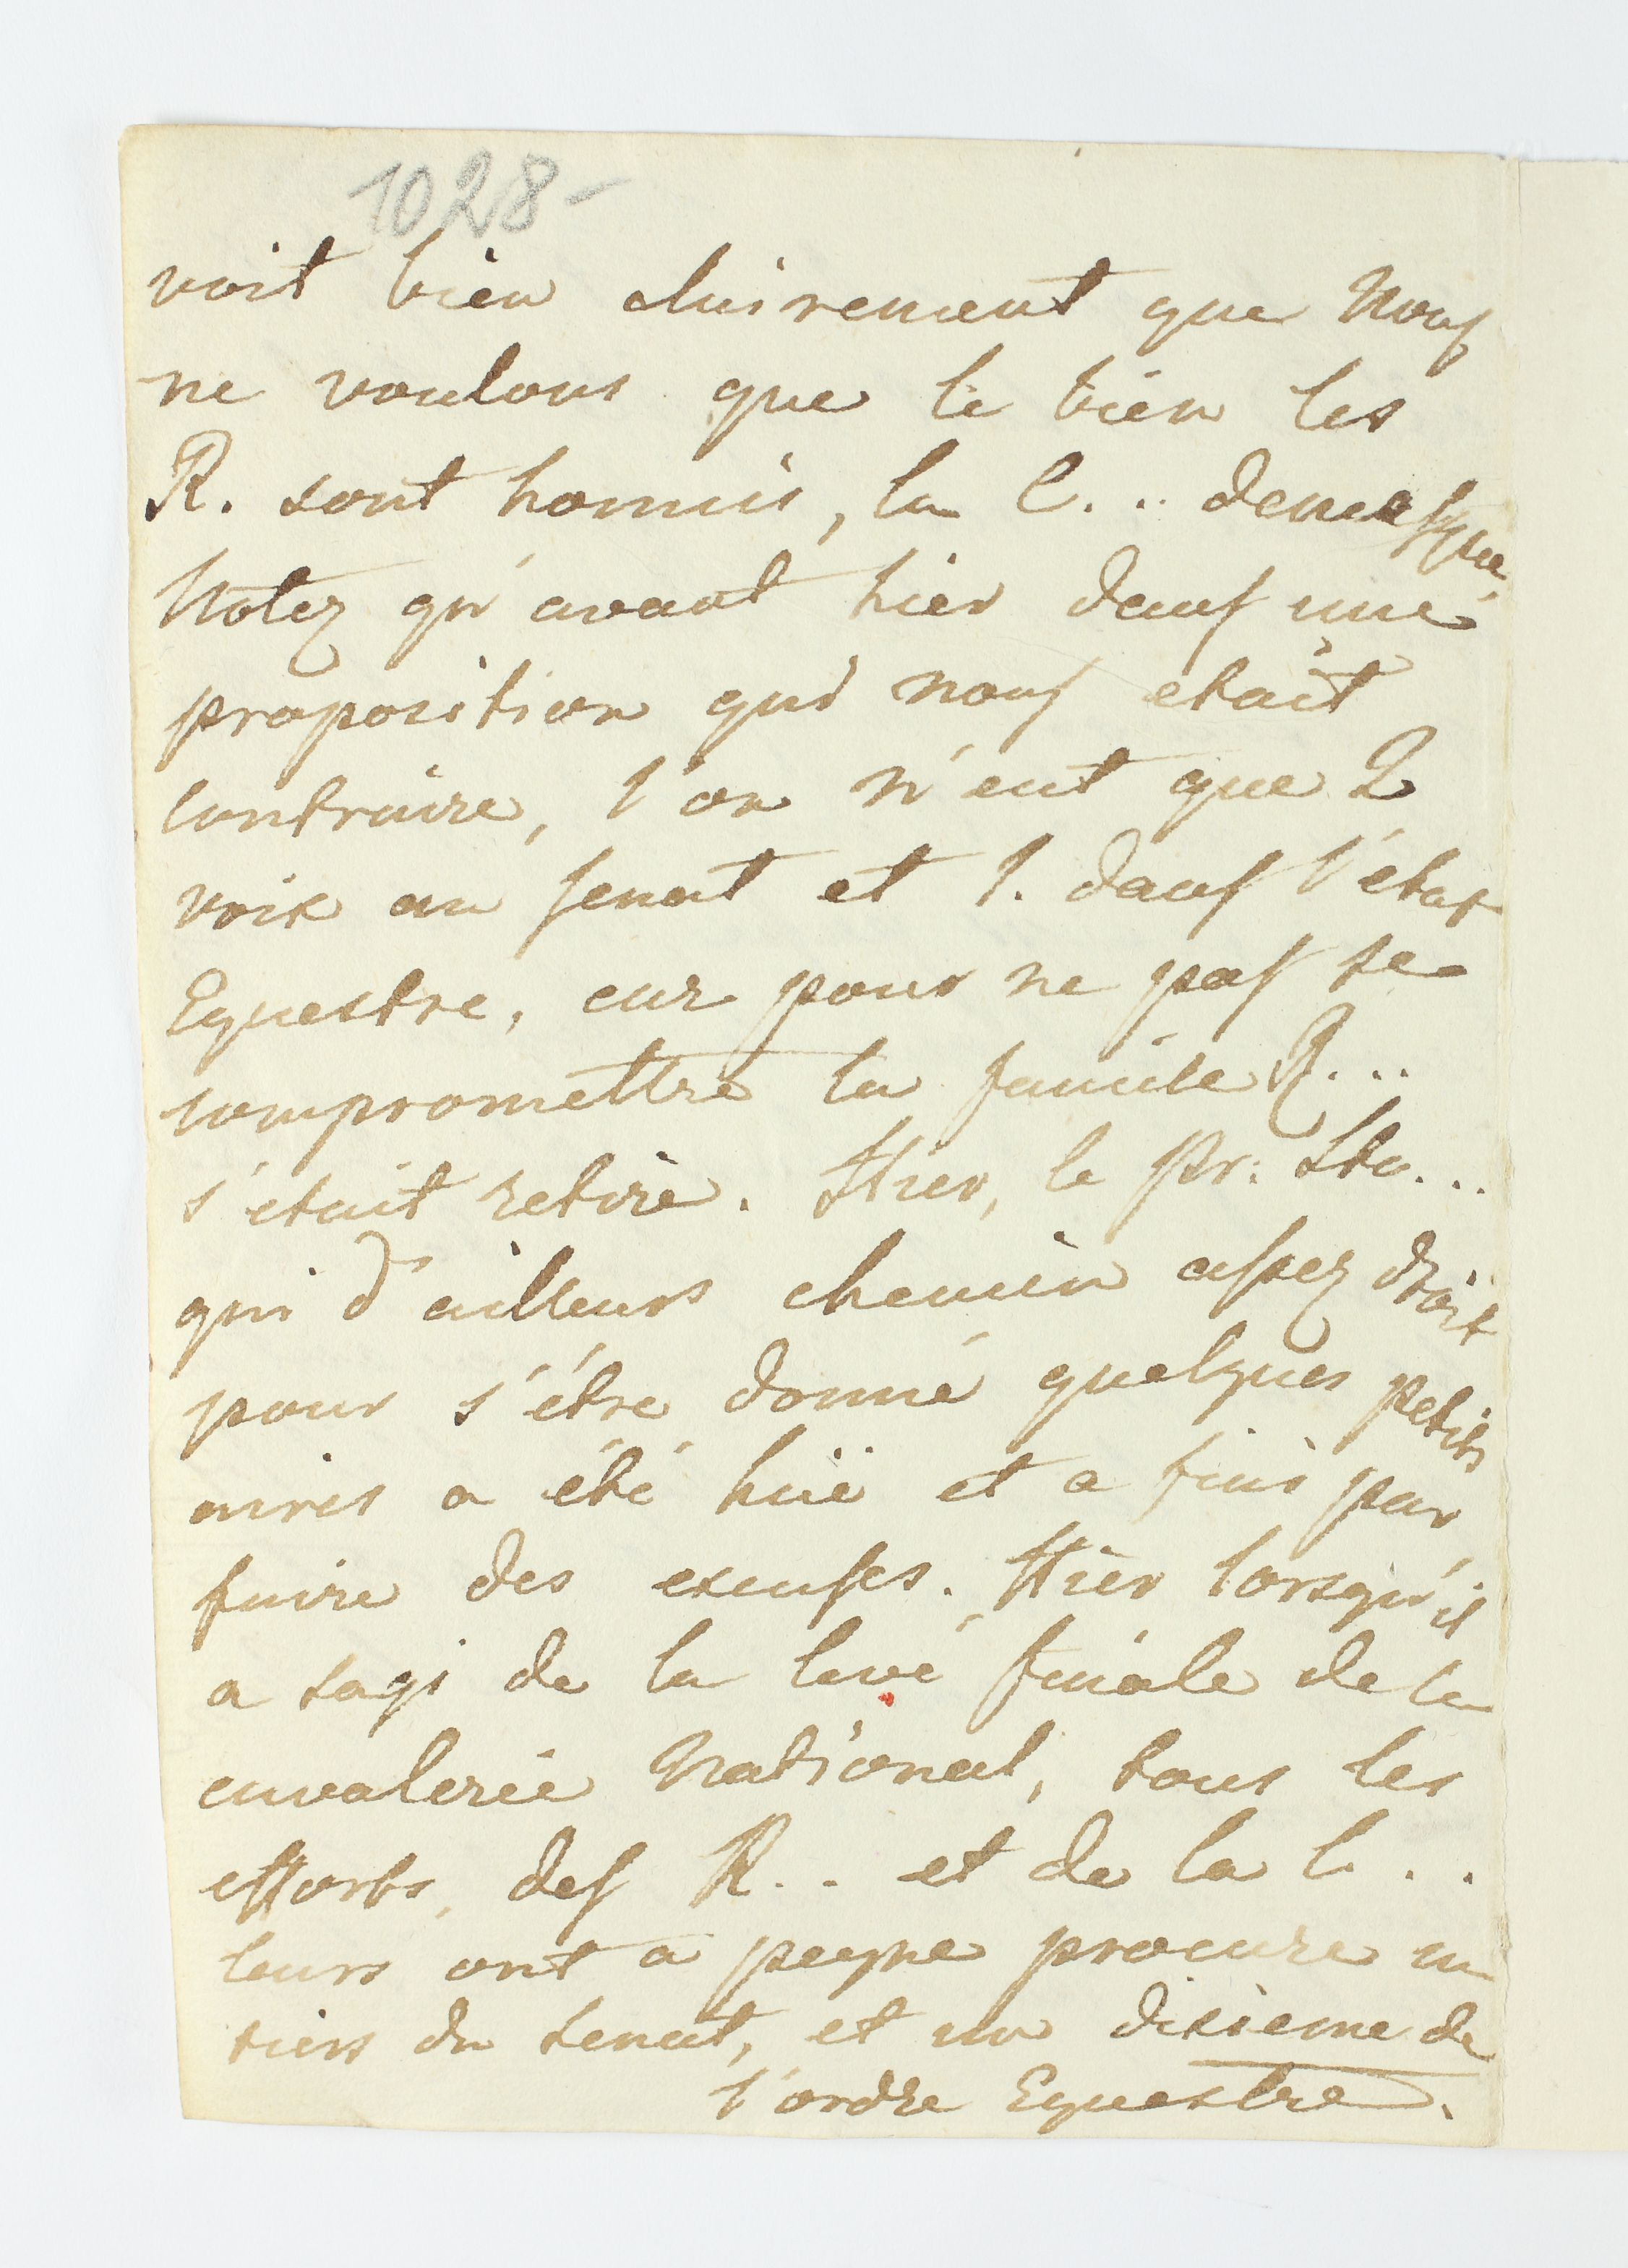 1028-
voit bien clairement que Nous
ne voulons que le bien les
R. sont honnis, la C... demasquée
Notez qu'avant hier dans une
proposition qui nous etait
contraire, l'on n'eut que 2
voix au senat et 1. dans l'état
Equestre, car pour ne pas se
comprometttre la famile R...
s'etait retiré. Hier, le Pr: Sta...
qui d'ailleurs chemin assez droit
pour s'être donné quelques petits
aires a été hué et a fini par
faire des excuses. Hier lorsqu'il
a sagi de la levé finale de la
cavalerie National, tous les
efforts, des R.. et de la C..
leurs ont a peyne procure un
tiers du senat, et un dixieme de
l'ordre Equestre.